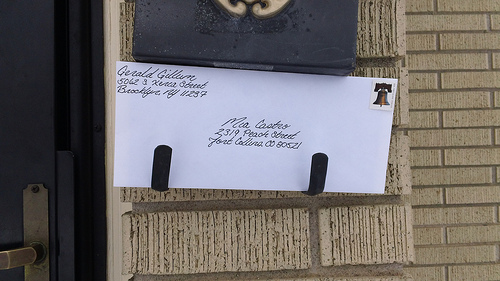 Gerald Gillum
5062 S. Xerxa Street
Brooklyn, NY 11237
Mia Castro
2319 Peach Street
Fort Collins, CO 80521